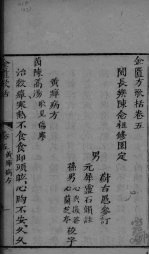 金匱方歌括卷五
閩長樂陳念祖修園定
男
蔚古愚參訂
元犀靈石韻註
孫男
心典徽菴
心蘭芝亭
校字
黃癉病方
茵陳蒿湯
治穀癉寒熱不食食即頭眩心胸不安久久
黃癉病方